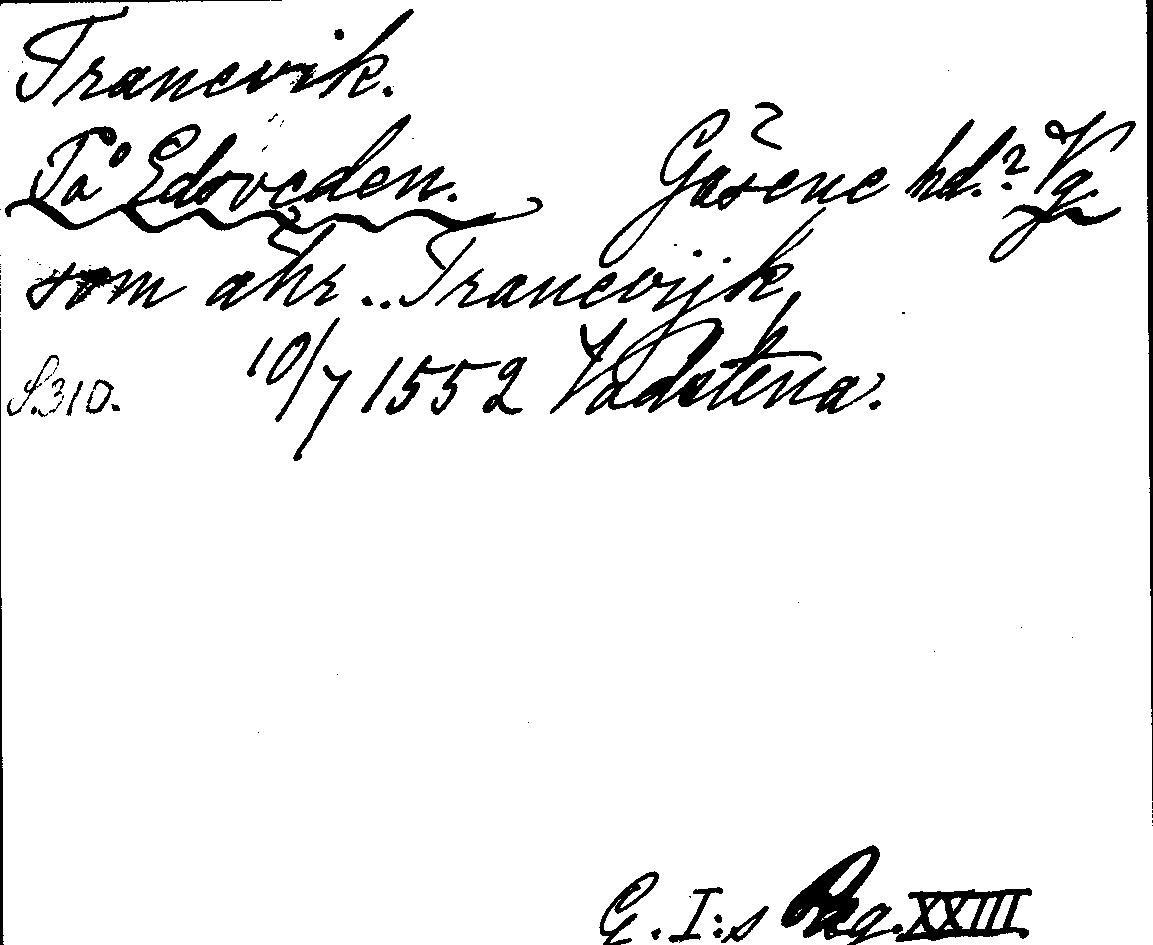 Tranevik.
På Edsveden. Gäsene hd.? Vg.
som ähr .. Tranevijk
S.310. 10/7 1552 Vadstena.
G. I:s Reg. XXIII.